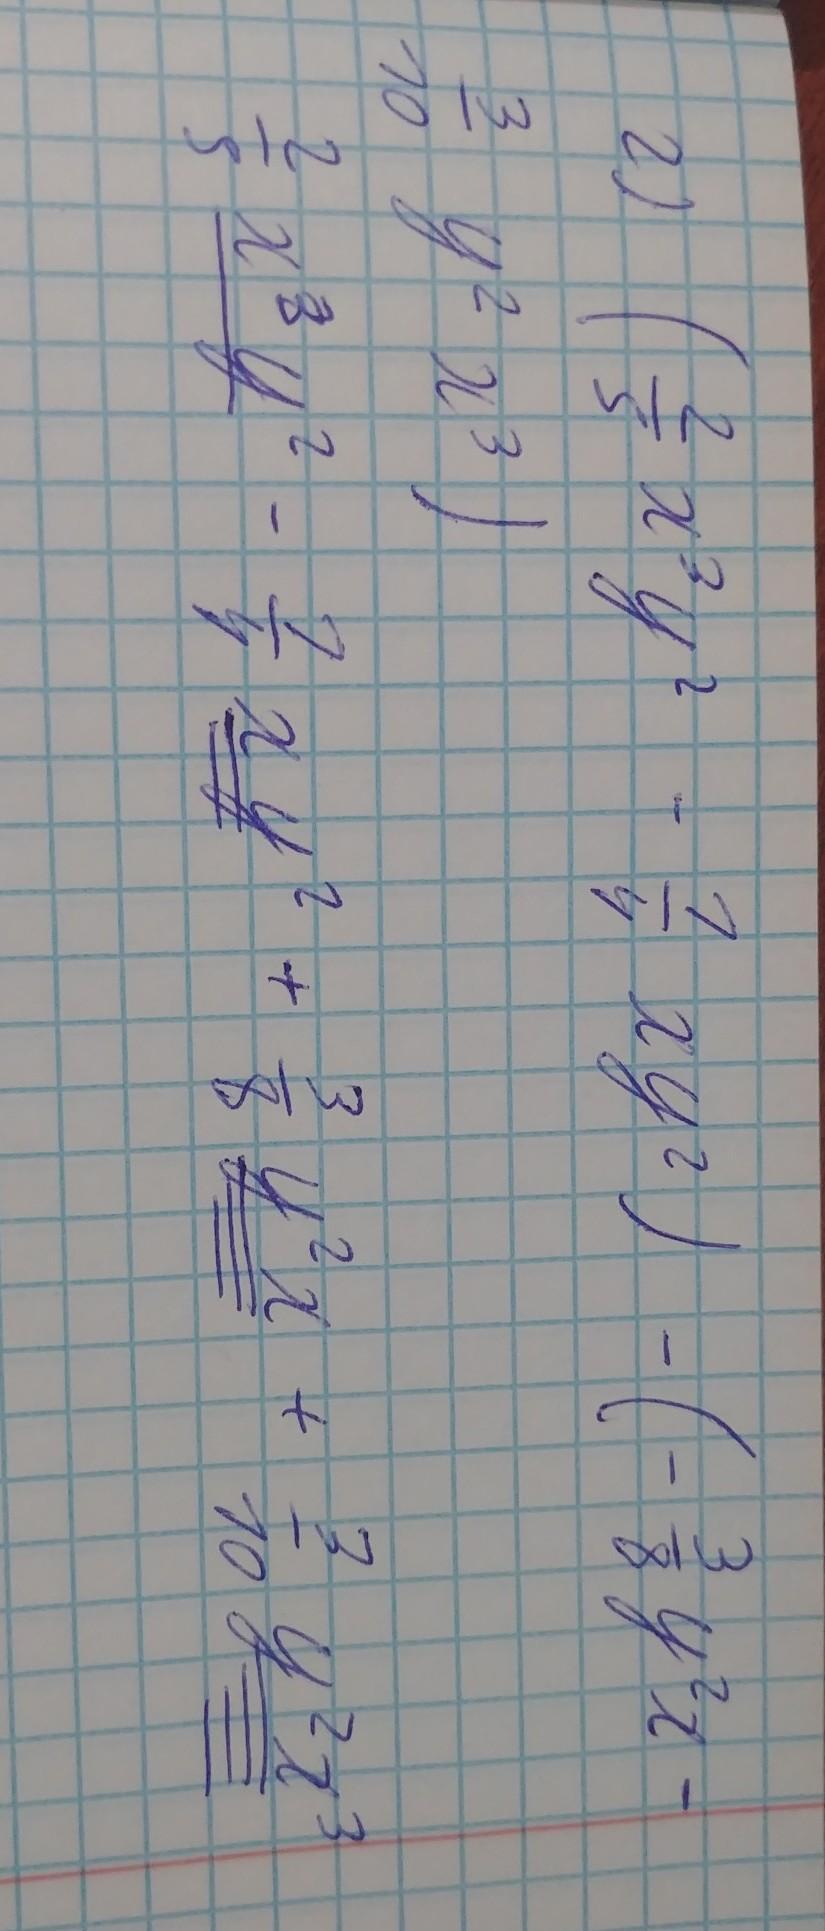 2) (2/5 x³y² - 1/4 xy²) - (- 3/8 y²x -
3/10 y²x³)
2/5 x³y² - 1/4 xy² + 3/8 y²x + 3/10 y²x³